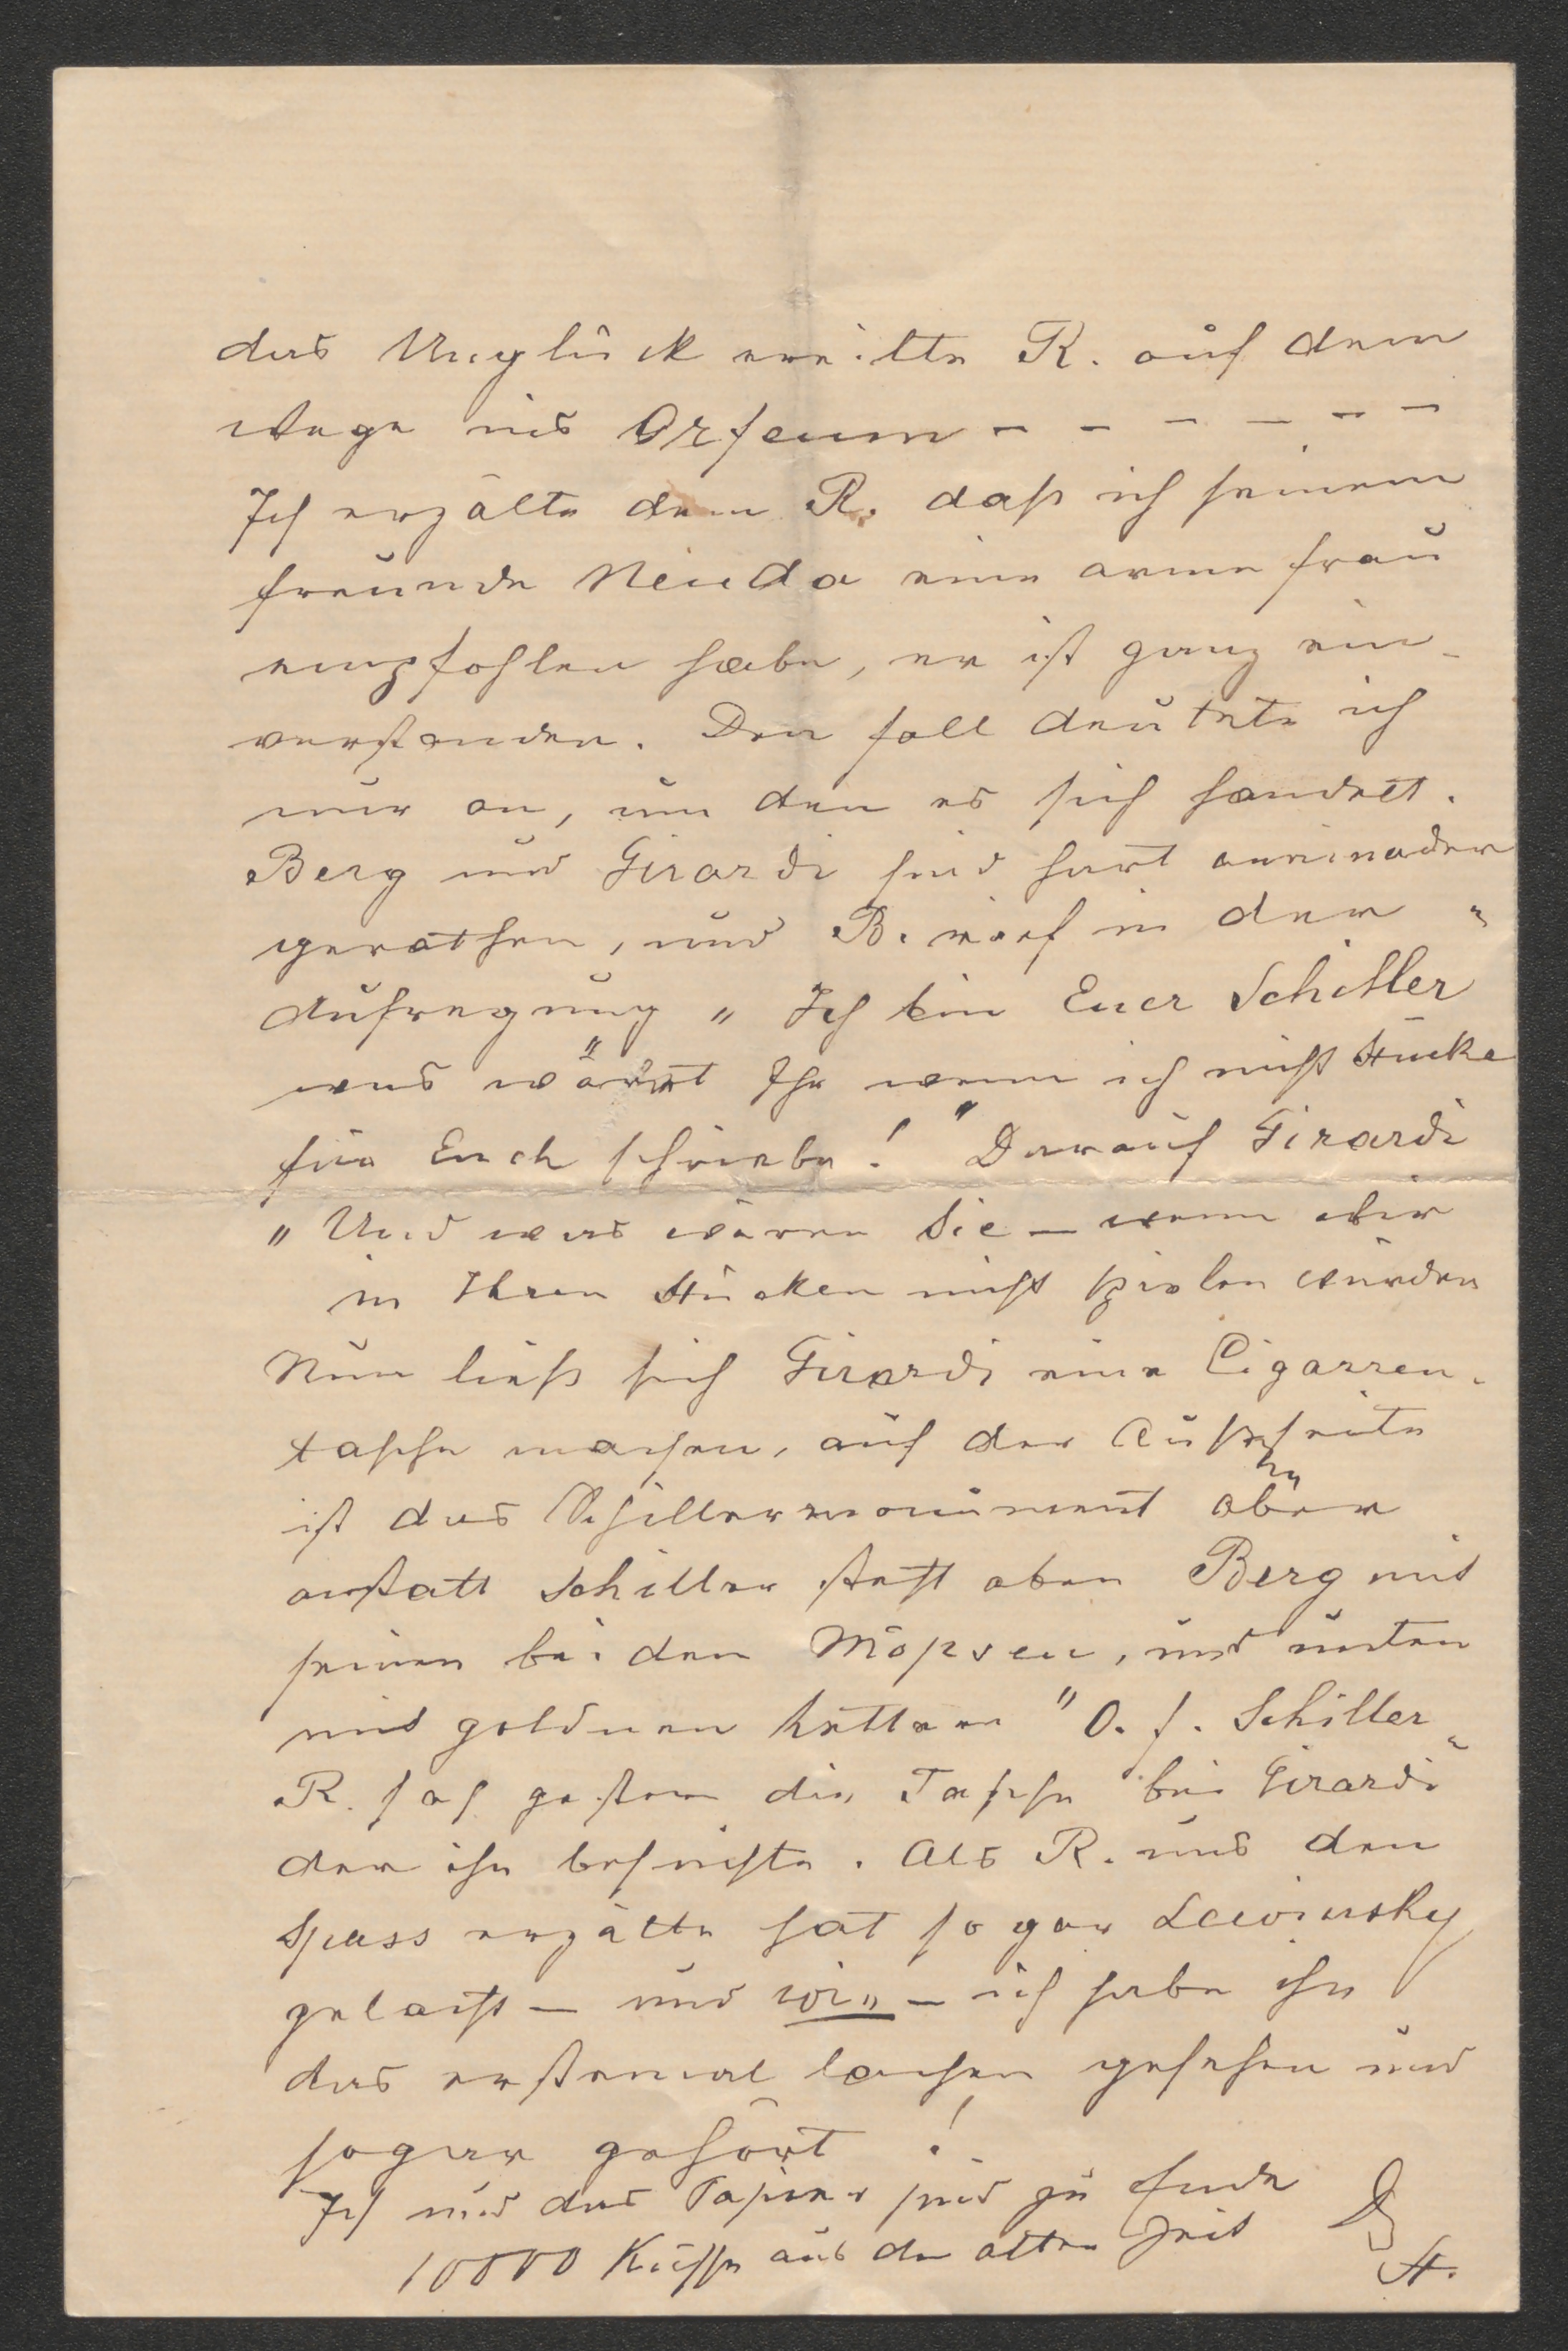 das Unglück ereilte R. auf dem
Wege ins Orfeum - - - - - -
Ich erzälte dem R. daß ich seinem
Freunde Neuda eine arme Frau
empfohlen habe, er ist ganz ein-
verstanden. Den Fall deutete ich
nur an, um den es sich handelt.
Berg und Girardi sind hart aneinader
gerathen, und B. rief in der
Aufregung „Ich bin Euer Schiller
was wäret Ihr wenn ich nicht Stücke
für Euch schriebe!" Darauf Girardi
„Und was wären Sie – wenn wir
in Ihren Stücken nicht spielen würden"
Nun ließ sich Girardi eine Cigarren-
tasche machen, auf der Außenseite
ist das Schillermonument aber
anstatt Schiller steht oben Berg mit
seinen beiden Möpsen, und unten
mit goldnen Lettern "O. F. Schiller"
R. sah gestern die Tasche bei Girardi
der ihn besuchte. Als R. uns den
Spass erzälte hat sogar Lewinsky
gelacht – und wie – ich habe ihn
das erstemal lachen gesehen und
sogar gehört!
Ich und das Papier sind zu Ende
10000 Küsse aus der alten Zeit D
A.